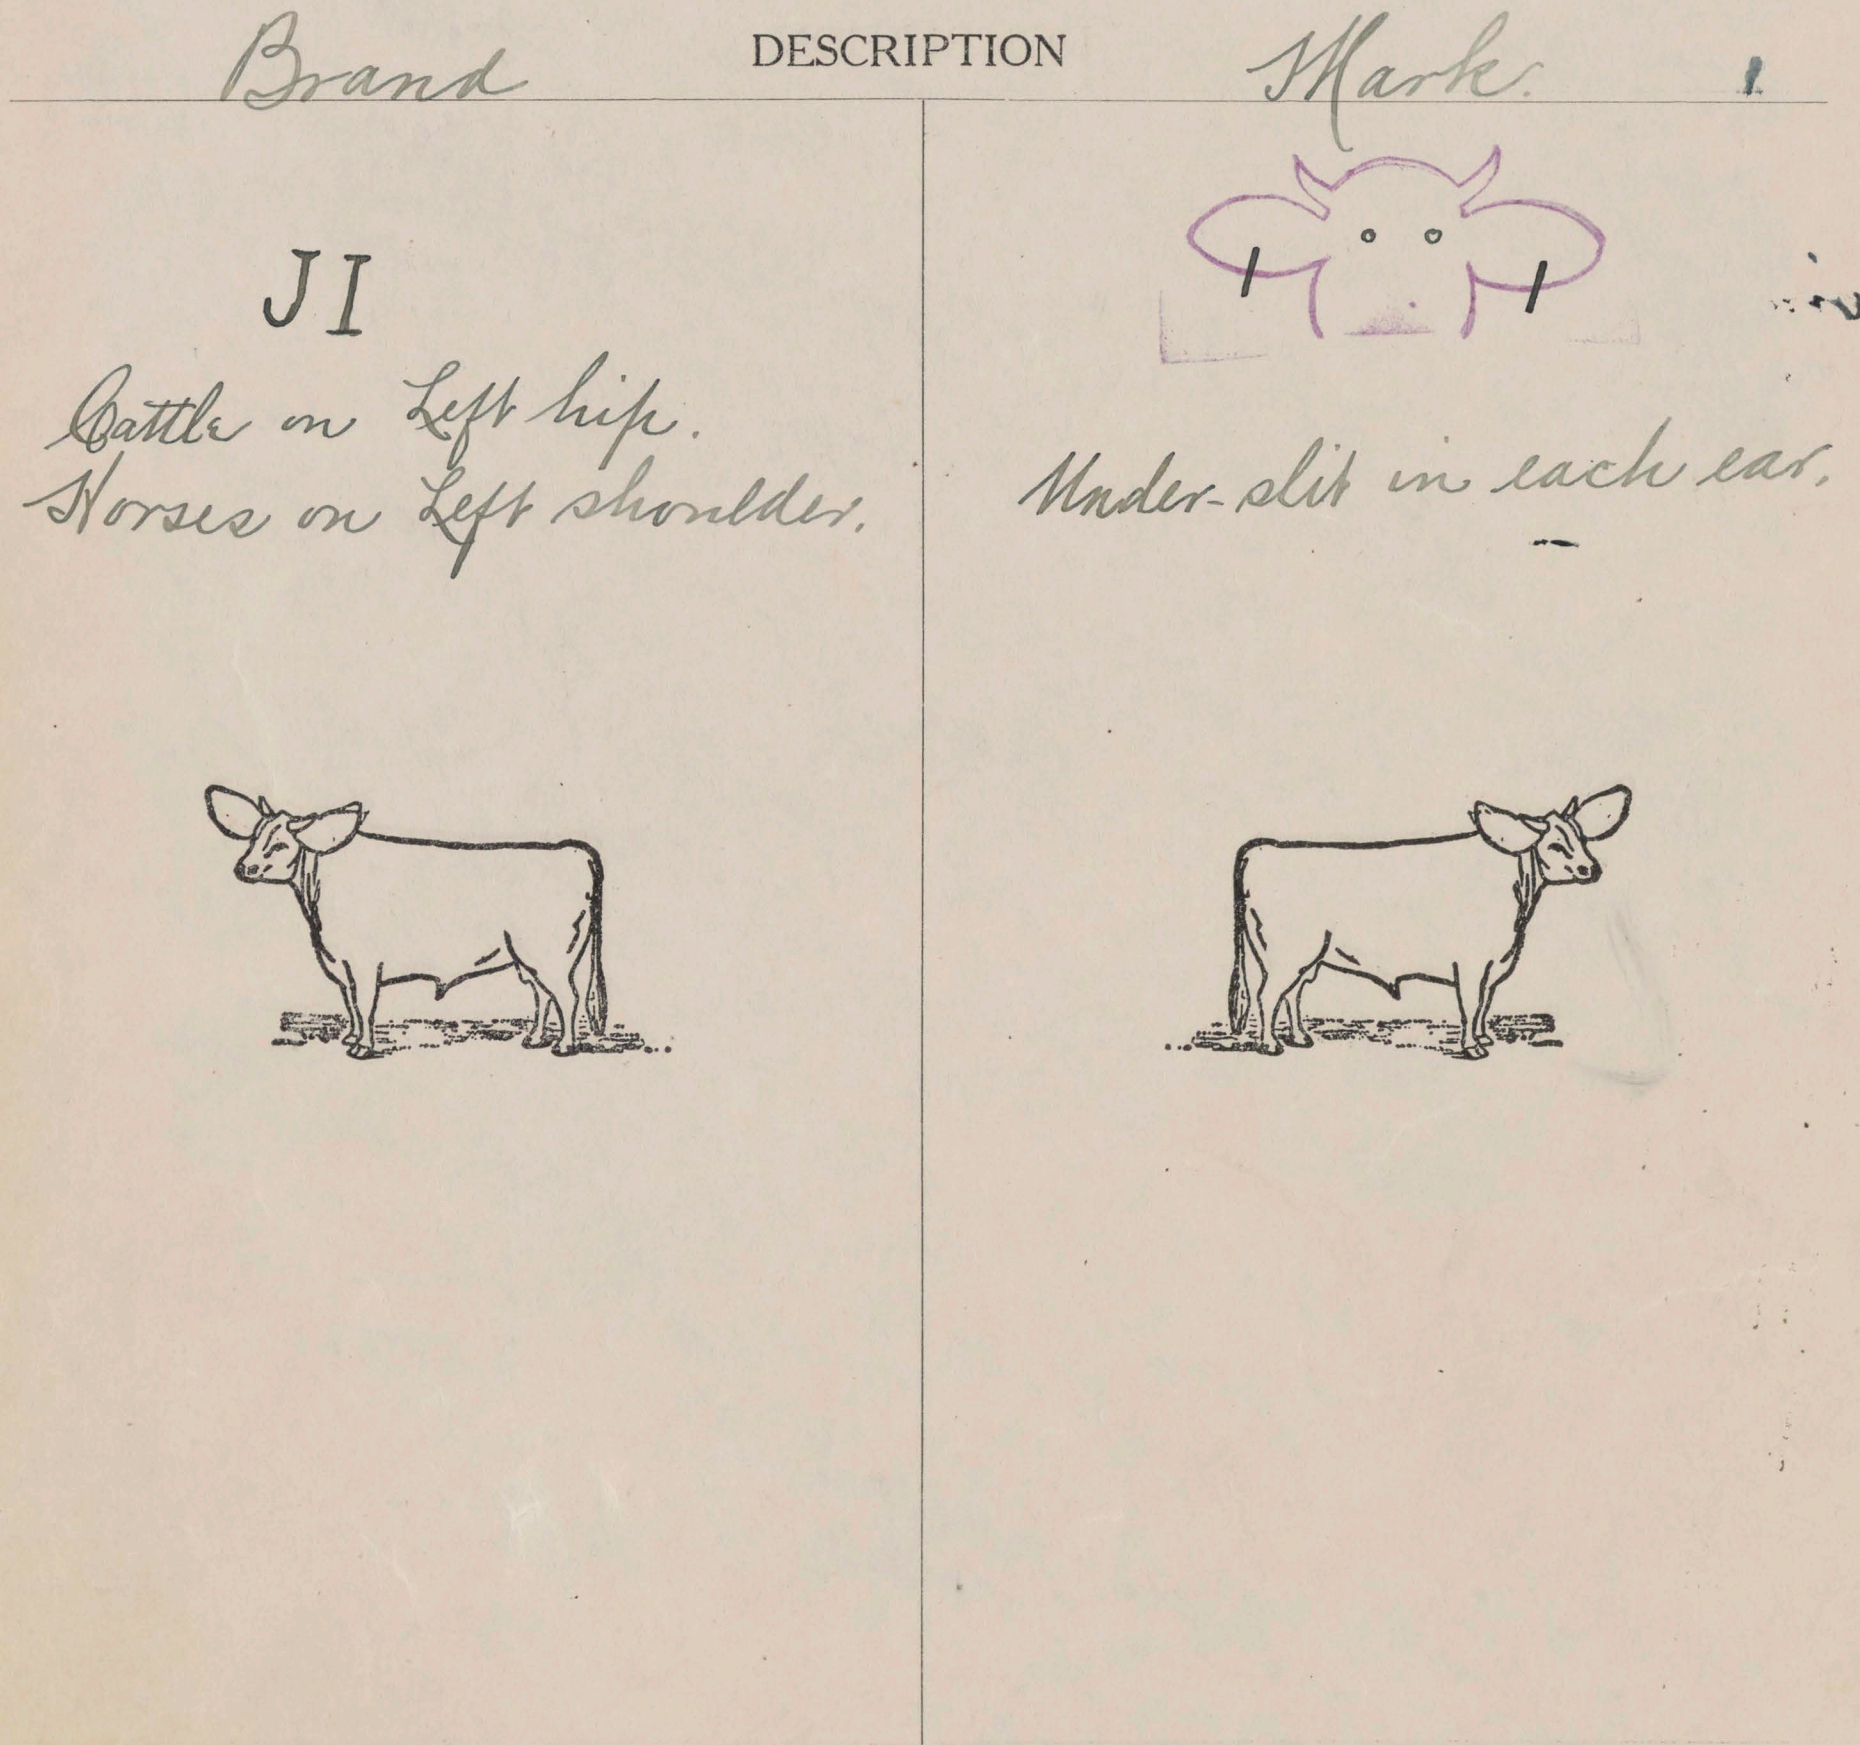 Brand DESCRIPTION Mark.
J I
Cattle on Left hip.
Horses on Left shoulder.
Under-slit in each ear.